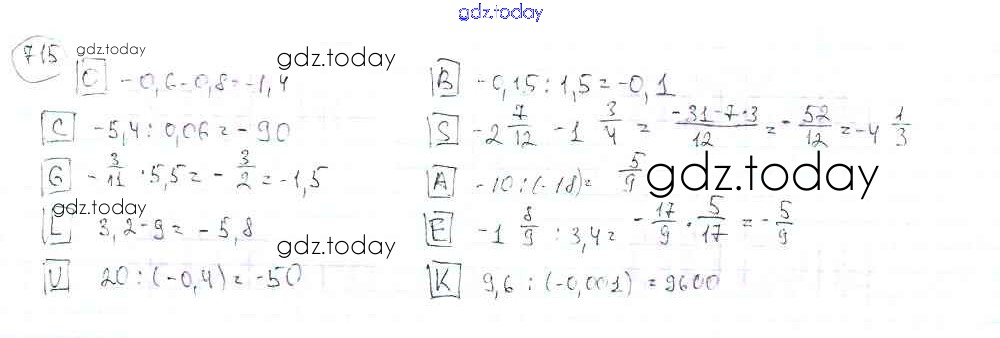 gdz.today
715 gdz.today gdz.today
C -0,6-0,8=-1,4
B -0,15:1,5=-0,1
C -5,4:0,06=-90
S -2 7/12 -1 3/4 = -31-7·3/12 =- 52/12 =-4 1/3
G -3/11 ·5,5=-3/2=-1,5
A -10:(-18)= 5/9 gdz.today
gdz.today
L 3,2-9=-5,8
E -1 8/9 :3,4= -17/9 · 5/17 =-5/9
gdz.today
U 20:(-0,4)=-50
K 9,6:(-0,001)=9600